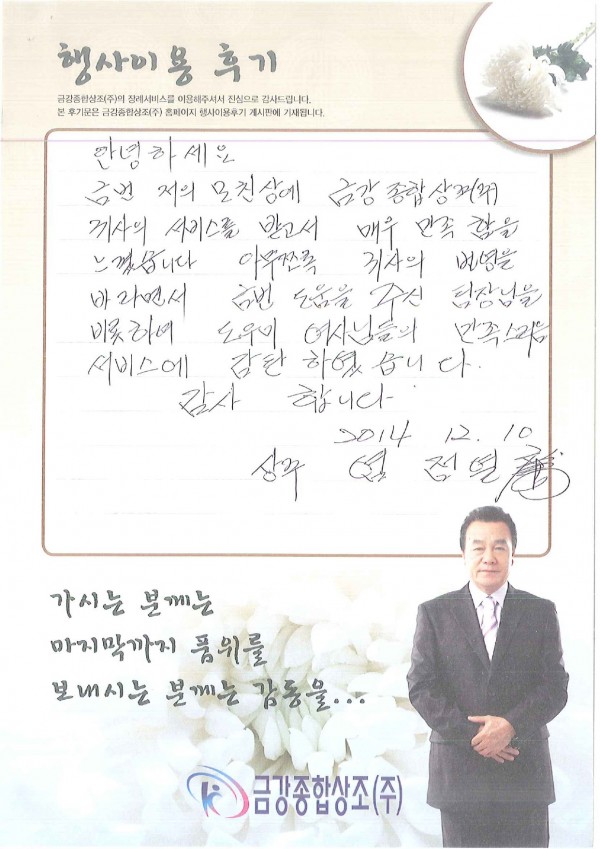 행사이용 후기
금강종합상조(주)의 장례서비스를 이용해주셔서 진심으로 감사드립니다.
본 후기문은 금강종합상조(주) 홈페이지 행사이용후기 게시판에 기재됩니다.
안녕하세요
금번 저의 모친상에 금강종합상조(주)
귀사의 서비스를 받고서 매우 만족함을
느꼈습니다 아무쪼록 귀사의 번영을
바라면서 금번 도움을 주신 팀장님을
비롯하여 도우미 여사님들의 만족스러움
서비스에 감탄 하였습니다.
감사 합니다
2014 12. 10
상주 염 정열
가시는 분께는
마지막까지 품위를
보내시는 분께는 감동을...
금강종합상조(주)